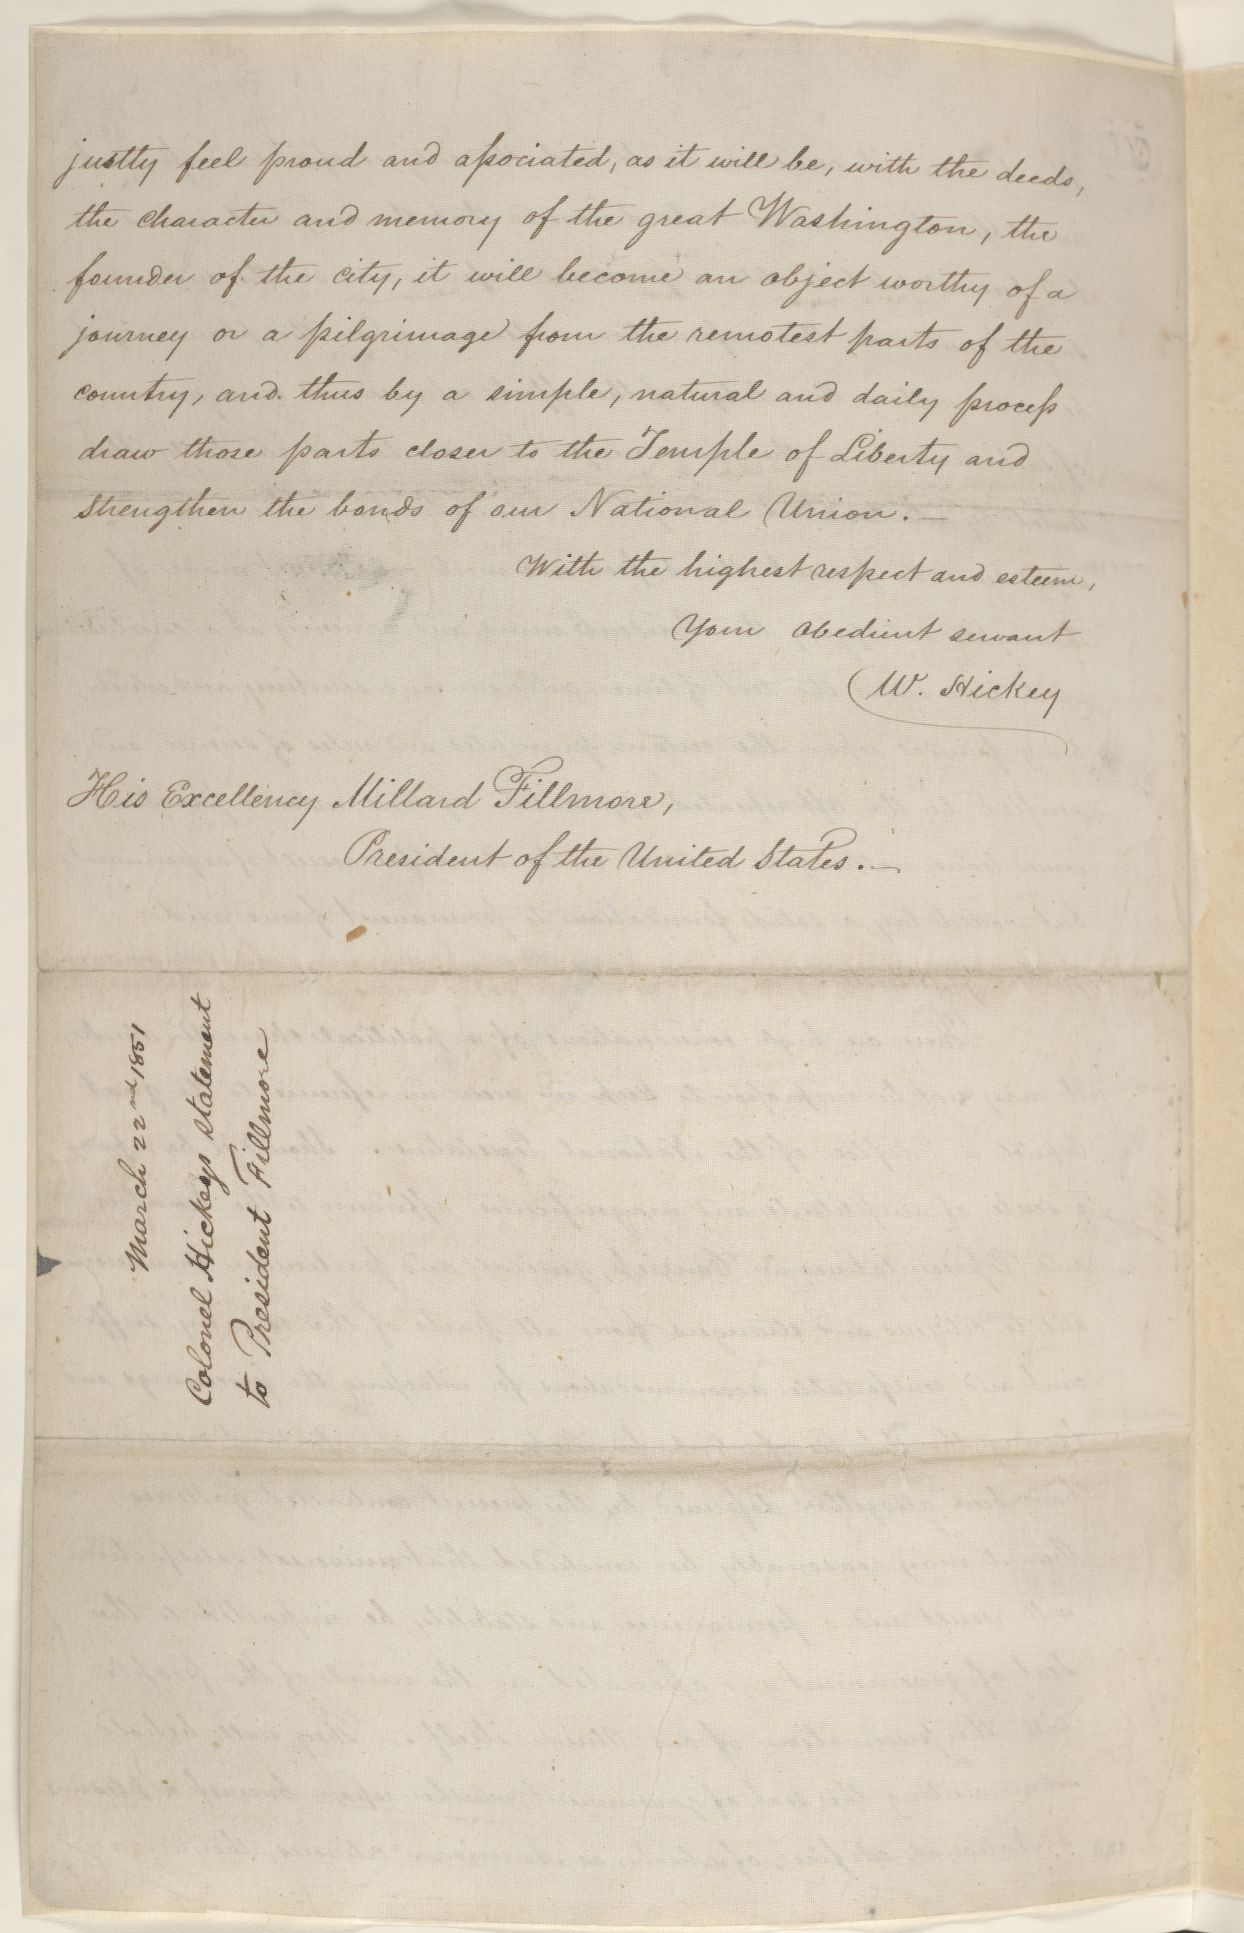 justly feel proud and associated, as it will be, with the deeds,
the character and memory of the great Washington, the
founder of the city, it will become an object worthy of a
journey or a pilgrimage from the remotest parts of the
country, and thus by a simple, natural and daily process
draw those parts closer to the Temple of Liberty and
strengthen the bonds of our National Union. —
With the highest respect and esteem,
Your obedient servant
W. Hickey
His Excellency Millard Fillmore,
President of the United States. —
March 22nd 1851
Colonel Hickeys statement
to President Fillmore